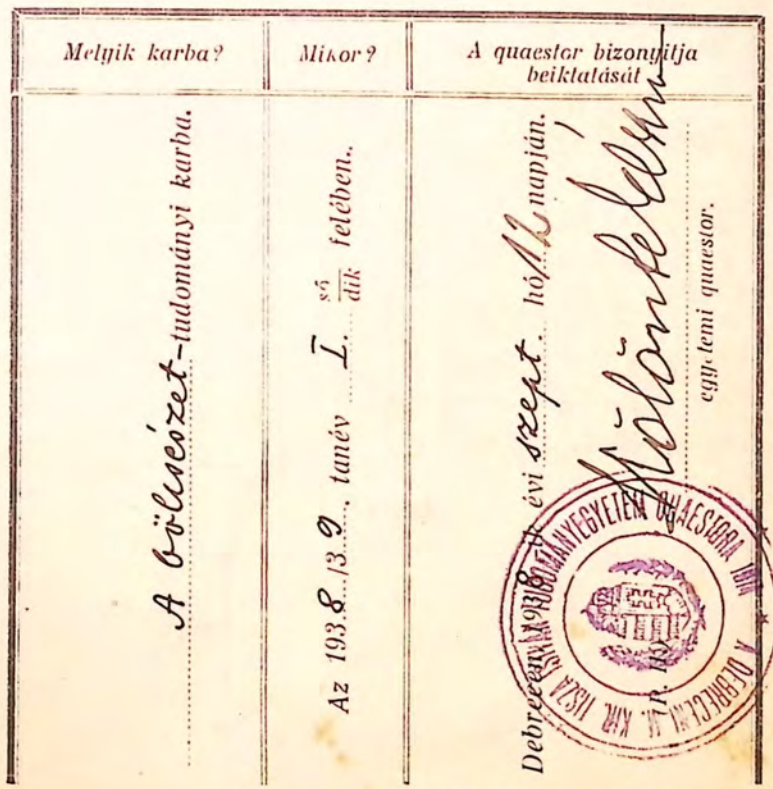 Melyik karba?
Mikor?
A quaestor bizonyitja
beiktatását
A bölcsészet-tudományi karba.
Az 1938/39. tanév I. ső/dik felében.
Debrecen, 1938 évi szept. hó 12 napján.
egyetemi quaestor.
A DEBRECENI M. KIR. TISZA ISTVÁN TUDOMÁNYEGYETEM QUAESTORA 1914